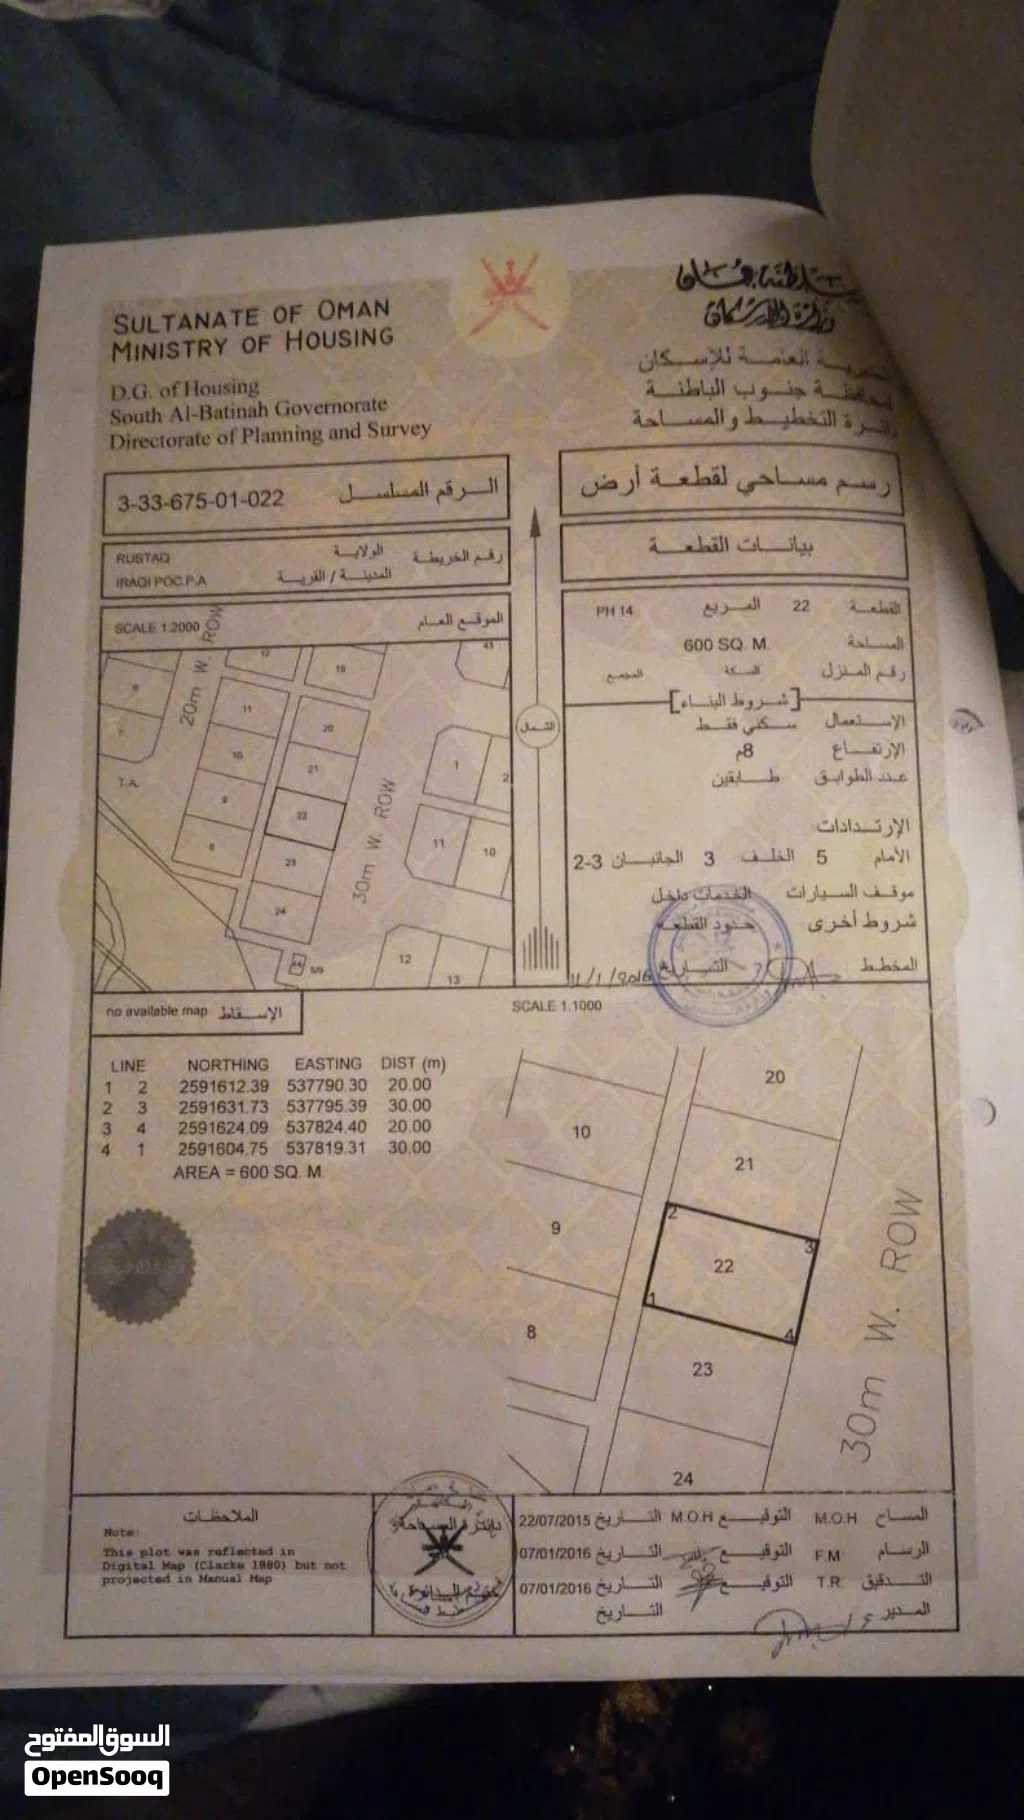 SULTANATE OF OMAN
MINISTRY OF HOUSING
D.G. of Housing
South Al-Batinah Governorate
Directorate of Planning and Survey
سلطنة عمان
وزارة الإسكان
العامة للإسكان
محافظة جنوب الباطنة
دائرة التخطيط والمساحة
3-33-675-01-022 الرقم المسلسل
رسم مساحي لقطعة أرض
RUSTAQ الولاية رقم الخريطة
IRAQI POC.P.A المدينة / القرية
بيانات القطعة
SCALE 1:2000 الموقع العام
القطعة 22 المربع PH 14
المساحة 600 SQ. M.
رقم المنزل السكة المجمع
[شروط البناء]
الإستعمال سكني فقط
الإرتفاع 8م
عدد الطوابق طابقين
الإرتدادات
الأمام 5 الخلف 3 الجانبان 2-3
موقف السيارات الخدمات داخل
شروط أخرى حدود القطعة
المخطط التاريخ 11/1/2016
20m W. ROW
30m W. ROW
6
7
T.A.
12
11
10
9
8
19
20
21
22
23
24
S/S
43
1
2
11
10
12
13
الشمال
no available map الإسقاط
SCALE 1:1000
LINE NORTHING EASTING DIST (m)
1 2 2591612.39 537790.30 20.00
2 3 2591631.73 537795.39 30.00
3 4 2591624.09 537824.40 20.00
4 1 2591604.75 537819.31 30.00
AREA = 600 SQ. M.
20
10
21
9
2
3
22
1
4
8
23
24
30m W. ROW
الملاحظات
Note:
This plot was reflected in
Digital Map (Clarke 1880) but not
projected in Manual Map
دائرة المساحة
المساح M.O.H التوقيع M.O.H التاريخ 22/07/2015
الرسام F.M التوقيع التاريخ 07/01/2016
التدقيق T.R. التوقيع التاريخ 07/01/2016
المدير التاريخ
السوق المفتوح
OpenSooq